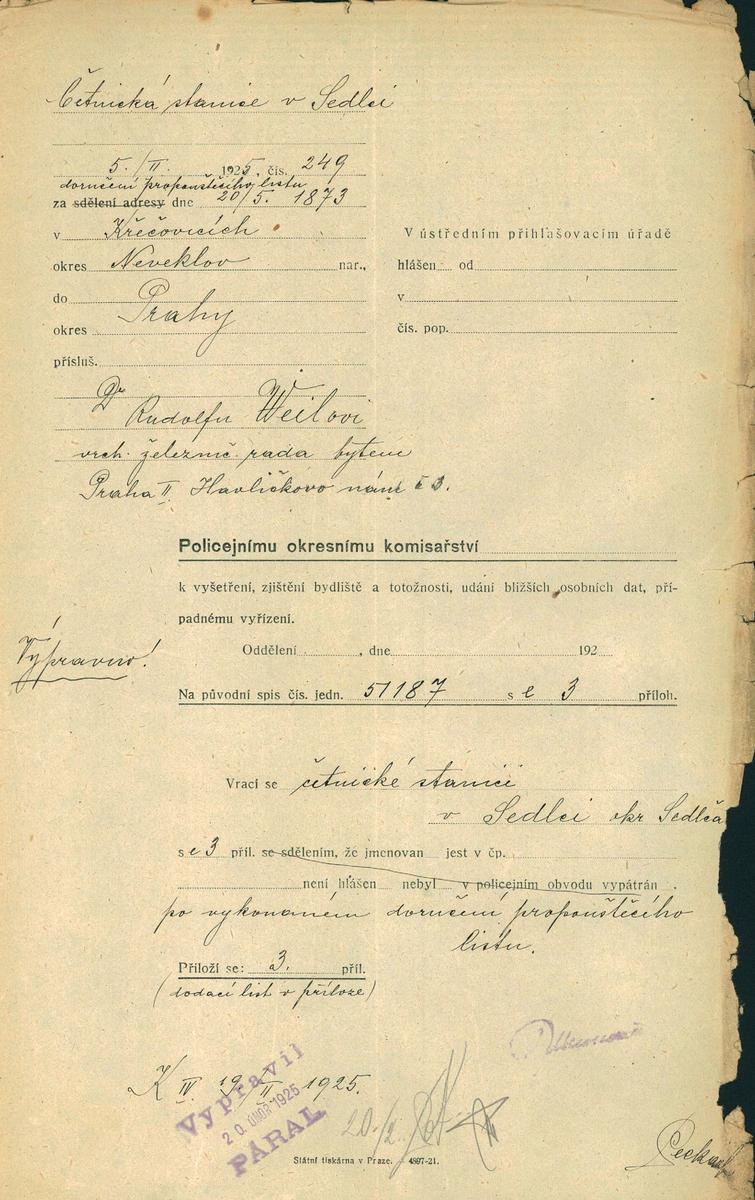 Četnická stanice v Sedlci
5./II. 1925, čís. 249
doručení propouštěcího listu
za sdělení adresy dne 20/5. 1873
v Křečovicích
okres Neveklov nar.,
do Prahy
okres
přísluš.
V ústředním přihlašovacím úřadě
hlášen od
v
čís. pop.
Dr Rudolfu Weilovi
vrch. železnič. rada bytem
Praha II Havlíčkovo nám č 3.
Policejnímu okresnímu komisařství
k vyšetření, zjištění bydliště a totožnosti, udání bližších osobních dat, pří-
padnému vyřízení.
Výpravno!
Oddělení , dne 192
Na původní spis čís. jedn. 51187 s e 3 příloh.
Vrací se četnické stanici
v Sedlci okr Sedlča
s e 3 příl. se sdělením, že jmenovan jest v čp.
není hlášen nebyl v policejním obvodu vypátrán .
po vykonaném doručení propouštěcího
listu.
Přiloží se: 3. příl.
(dodací list v příloze)
K IV 19/II 1925.
Vypravil
20. ÚNOR 1925
PÁRAL
20/2
Státní tiskárna v Praze. — 4897-21.